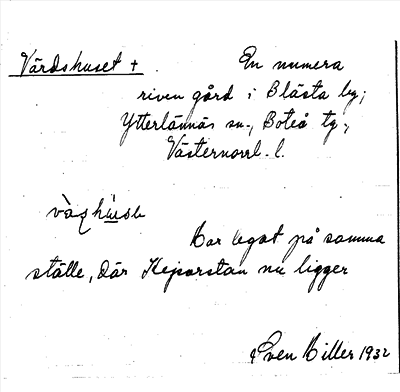 Värdshuset + En numera
riven gård i Blästa by;
Ytterlännäs sn., Boteå tg.,
Västernorrl. l.
Har legat på samma
ställe, där Kejsarstan nu ligger
Sven Hiller 1932